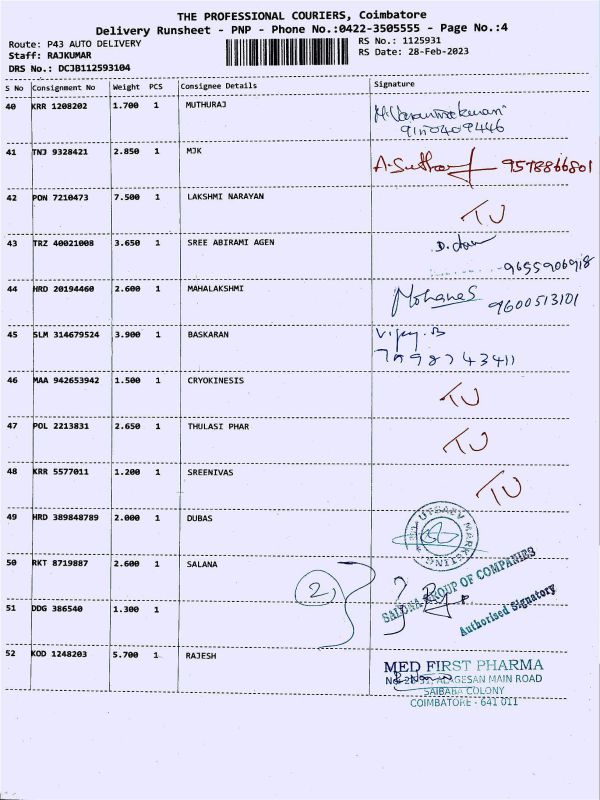 THE PROFESSIONAL COURIERS, Coimbatore
Delivery Runsheet - PNP - Phone No.:0422-3505555 - Page No.:4
Route: P43 AUTO DELIVERY
Staff: RAJKUMAR
DRS No.: DCJB112593104
RS No.: 1125931
RS Date: 28-Feb-2023
S No Consignment No Weight PCS Consignee Details Signature
40 KRR 1208202 1.700 1 MUTHURAJ
41 TNJ 9328421 2.850 1 MJK 9578866801
42 PON 7210473 7.500 1 LAKSHMI NARAYAN TU
43 TRZ 40021008 3.650 1 SREE ABIRAMI AGEN
9655906918
44 HRD 20194460 2.600 1 MAHALAKSHMI 9600513101
45 SLM 314679524 3.900 1 BASKARAN Vijay.B
46 MAA 942653942 1.500 1 CRYOKINESIS TU
47 POL 2213831 2.650 1 THULASI PHAR TU
48 KRR 5577011 1.200 1 SREENIVAS TU
49 HRD 389848789 2.000 1 DUBAS UTSAV MARKETING
50 RKT 8719887 2.600 1 SALANA 2 GROUP OF COMPANIES
Authorised Signatory
51 DDG 386540 1.300 1
52 KOD 1248203 5.700 1 RAJESH
MED FIRST PHARMA
ALAGESAN MAIN ROAD
SAIBABA COLONY
COIMBATORE - 641 011